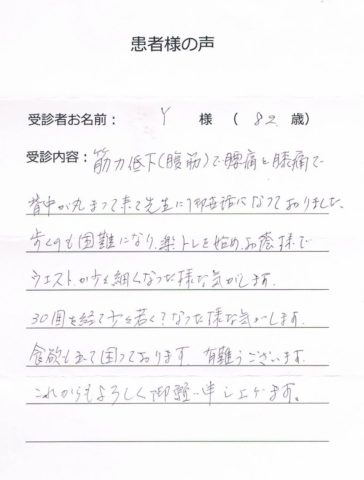 患者様の声
受診者お名前： Y 様 （ 82 歳）
受診内容： 筋力低下(腹筋)で腰痛と膝痛で
背中が丸まって来て先生に御世話になっておりました。
歩くのも困難になり、楽トレを始め、お蔭様で
ウエストが少し細くなった様な気がします。
30回を経て少し若く？なった様な気がします。
食欲も出て困っております。有難うございます。
これからもよろしく御願い申し上げます。